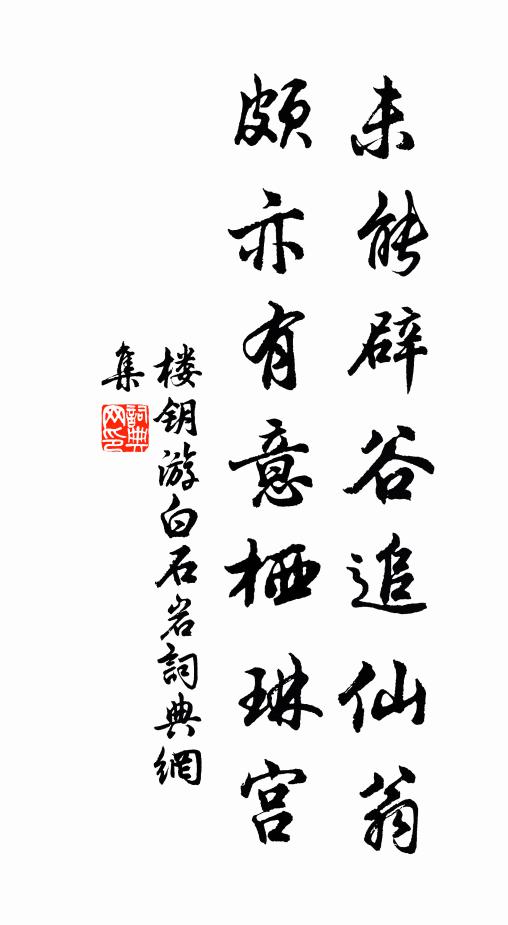 未能辟谷追仙翁
颇亦有意栖琳宫
楼钥游白石岩詞典網
集
詞典
网印